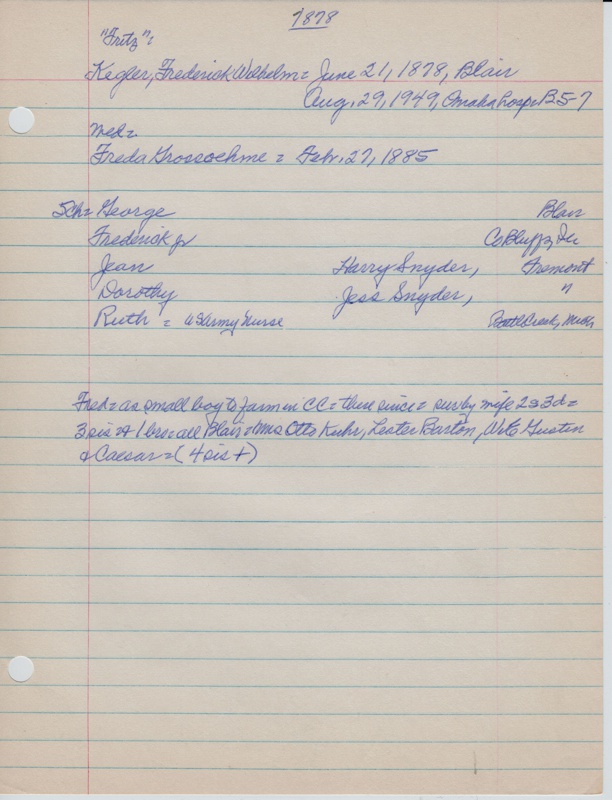 1878
"Fritz":
Kegler, Frederick Wilhelm = June 21, 1878, Blair
Aug. 29, 1949, Omaha hosp. B5-7
Med =
Freda Grossoehme = Febr. 27, 1885
5ch = George Blair
Frederick Jr Co Bluffs, Ia
Jean Harry Snyder, Fremont
Dorothy Jess Snyder, "
Ruth = US Army Nurse Battle Creek, Mich
Fred = as small boy to farm in CC = there since = sur by wife 2s 3d =
3 sis & 1 bro = all Blair = Mrs Otto Kuhr, Lester Barton, Gustin
& Caesar = (4 sis +)